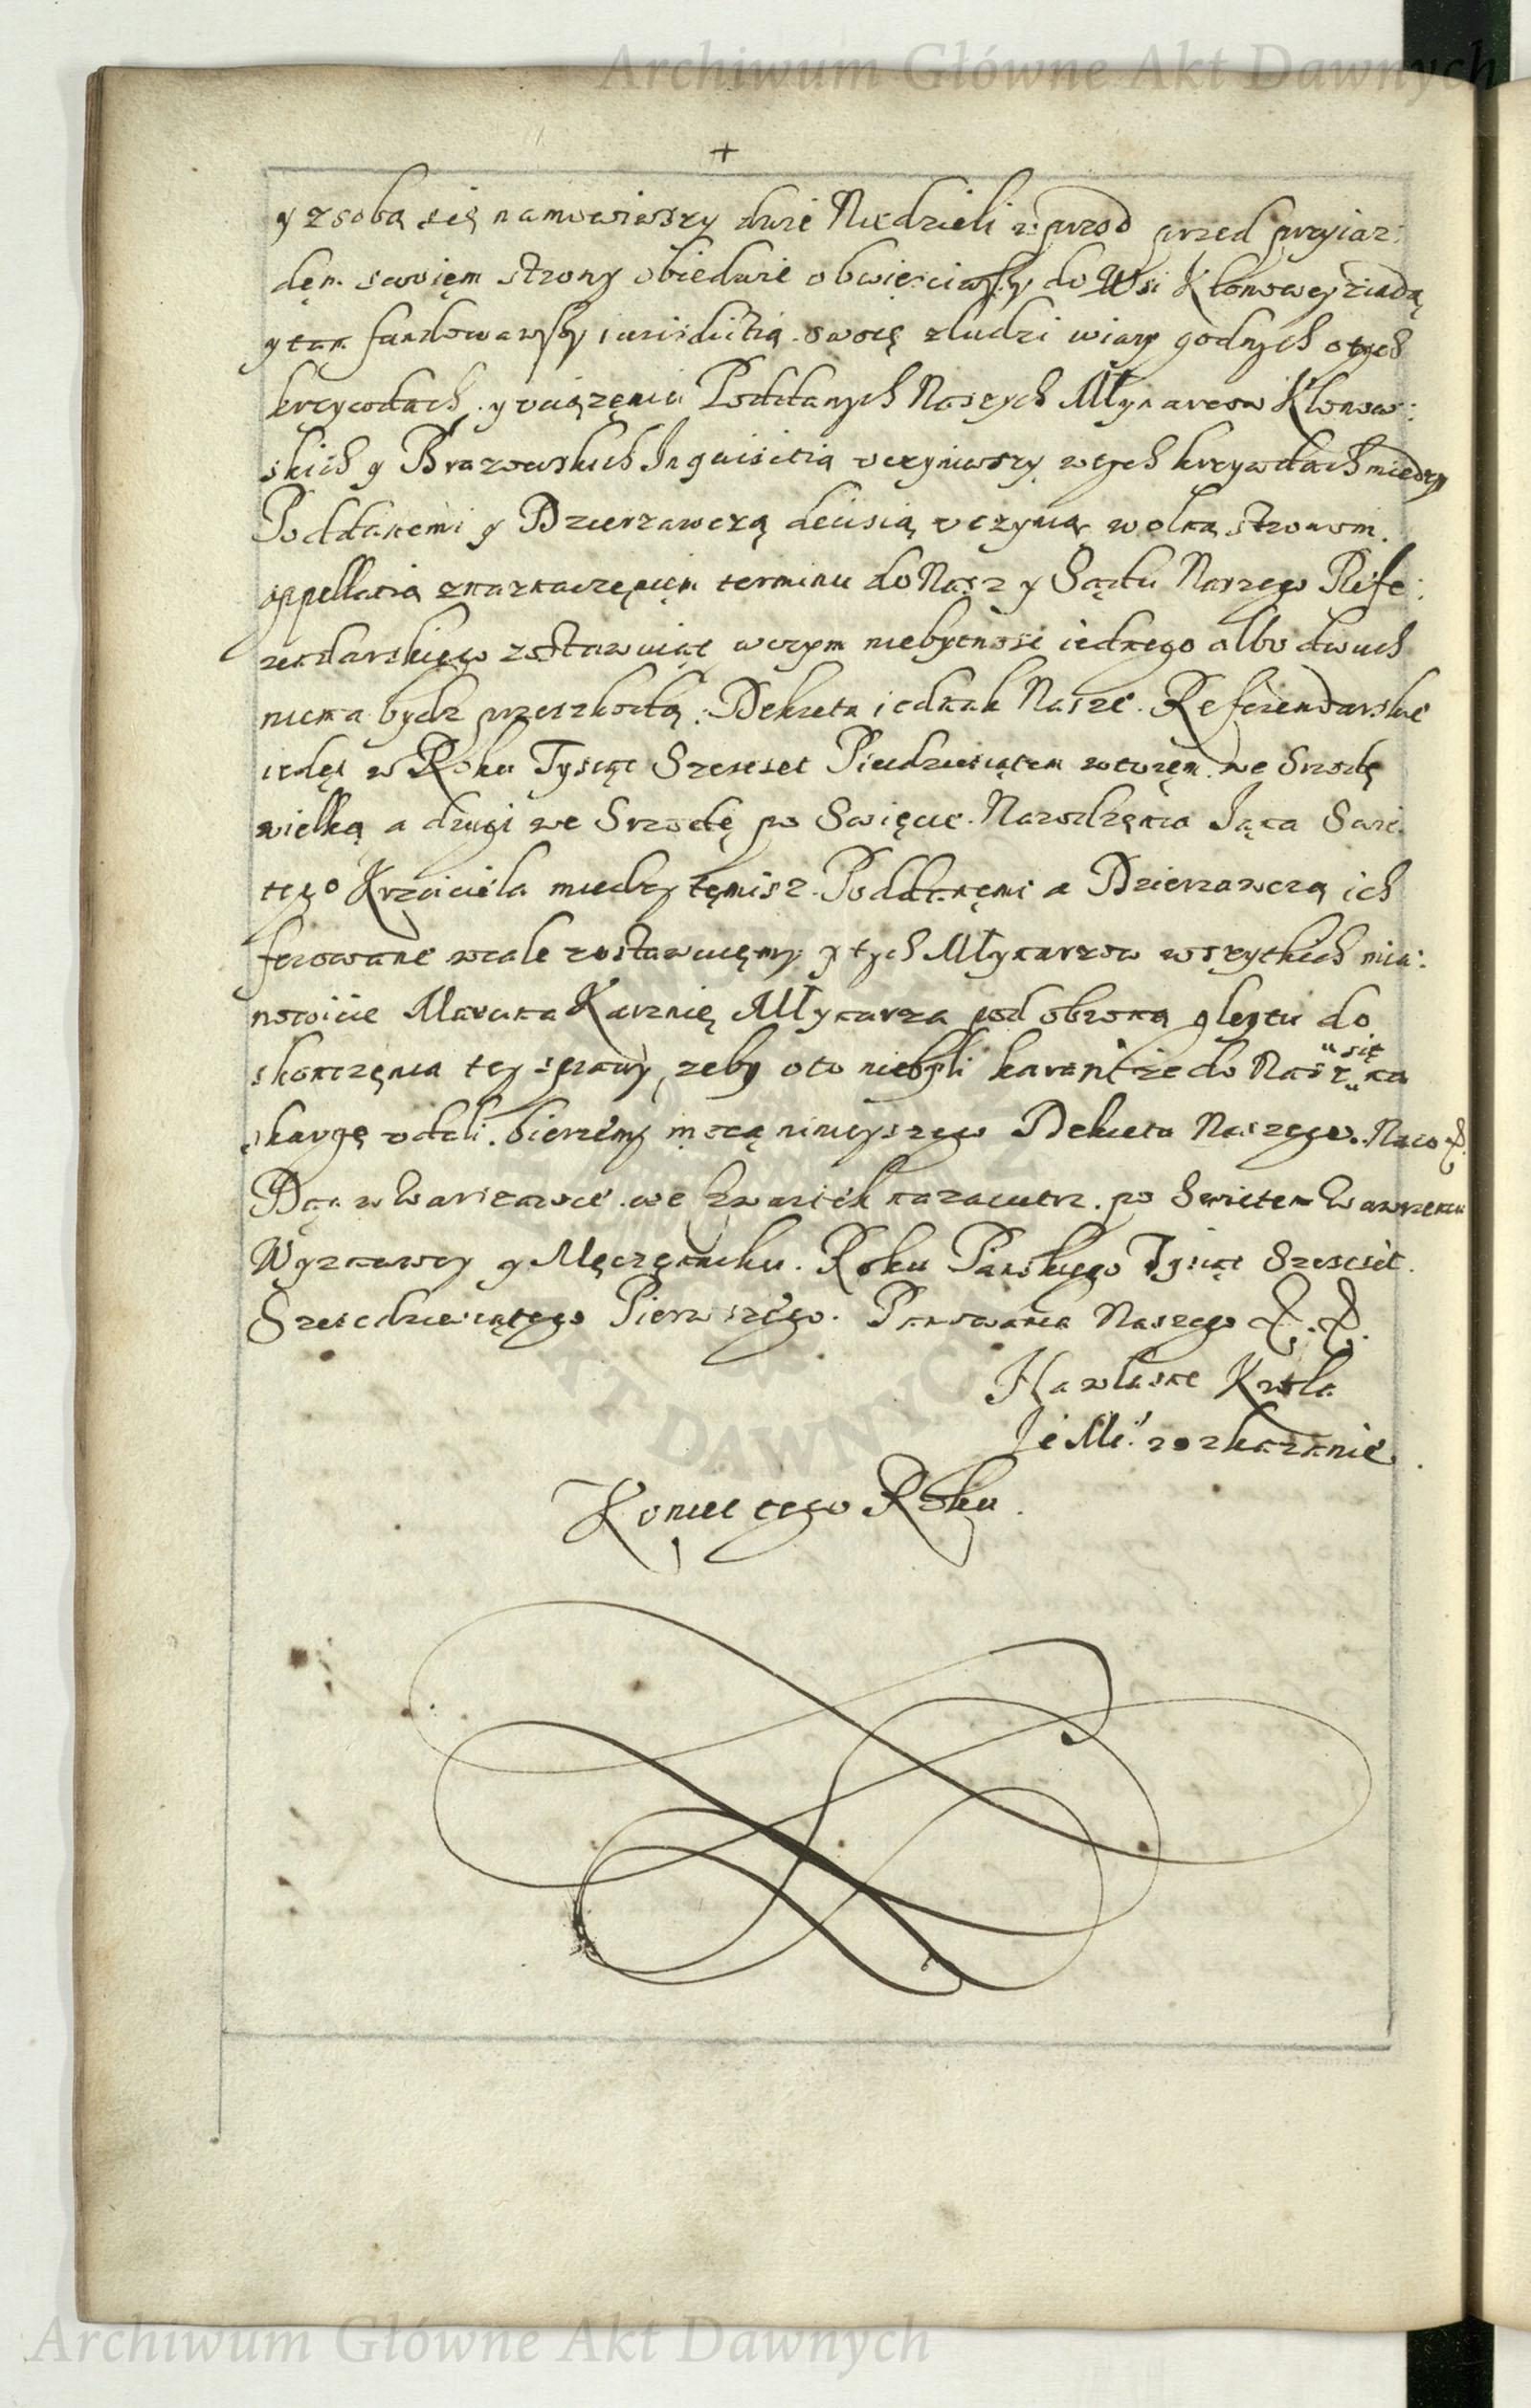 Archiwum Główne Akt Dawnych
+
y z sobą się namowiwszy dwie Niedzieli wprzod przed przyiaz:
dęm swoięm strony obiedwie obwięsciwszy do Wsi Kłonowey ziadą
y tam fundowawszy iurisdictią swoię z ludzi wiary godnych o tych
krzywdach y uciązęniu Poddanych Naszych Młynarzow Klonow:
skich y Brazowskich Inquisitią uczyniwszy w tych krzywdach miedzy
Poddanemi y Dzierzawczą decisią uczynią wolną stronom
appellatią z naznaczęnięm terminu do Nas y Sądu Naszego Refe:
rendarskiego zostawuiąc w czym niebytnosc iednego albo dwuch
niema bydz przeszkodą. Dekreta iednak Nasze Referendarskie
ieden w Roku Tysiąc Szescset Piecdziesiątem wtoręm we Srzodę
wielką a drugi we Srzodę po Swięcie Narodzęnia Jąna Swię
tego Krzciciela miedzy tęmisz Poddanęmi a Dzierzawczą ich
ferowane wcale zostawuięmy y tych Młynarzow wszytkich mia:
nowicie Marcina Karznię Młynarza pod obroną gleytu do
skonczęnia tey sprawy, zeby o to niebyli karani że do Nas się na
skargę udali. bierzemy mocą nineyszego Dekretu Naszego. Na co &
Dąn w Warszawie we Czwartek nazaiutrz po Swietem Wawrzencu
Wyznawcy y Męczęnniku. Roku Panskiego Tysiąc Szescset
Szescdziesiątego Pierwszego. Panowania Naszego &. &.
Na własne Krola
Je Mci rozkazanie
Koniec tego Roku.
DAWNYCH
Archiwum Główne Akt Dawnych